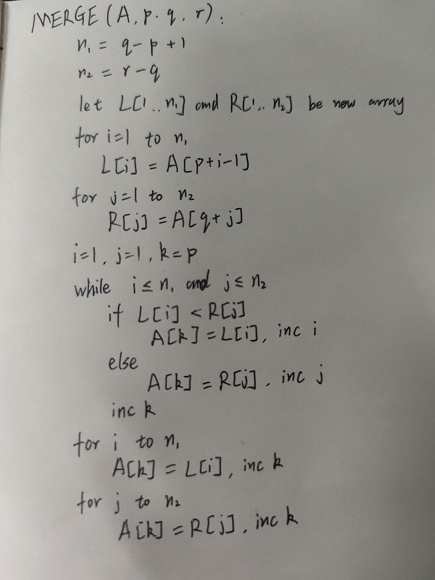 MERGE (A, p. q, r):
n₁ = q-p+1
n₂ = r-q
let L[1..n₁] and R[1..n₂] be new array
for i=1 to n₁
L[i] = A[p+i-1]
for j=1 to n₂
R[j] = A[q+j]
i=1, j=1, k=p
while i≤n₁ and j≤n₂
if L[i] < R[j]
A[k] = L[i], inc i
else
A[k] = R[j], inc j
inc k
for i to n₁
A[k] = L[i], inc k
for j to n₂
A[k] = R[j], inc k